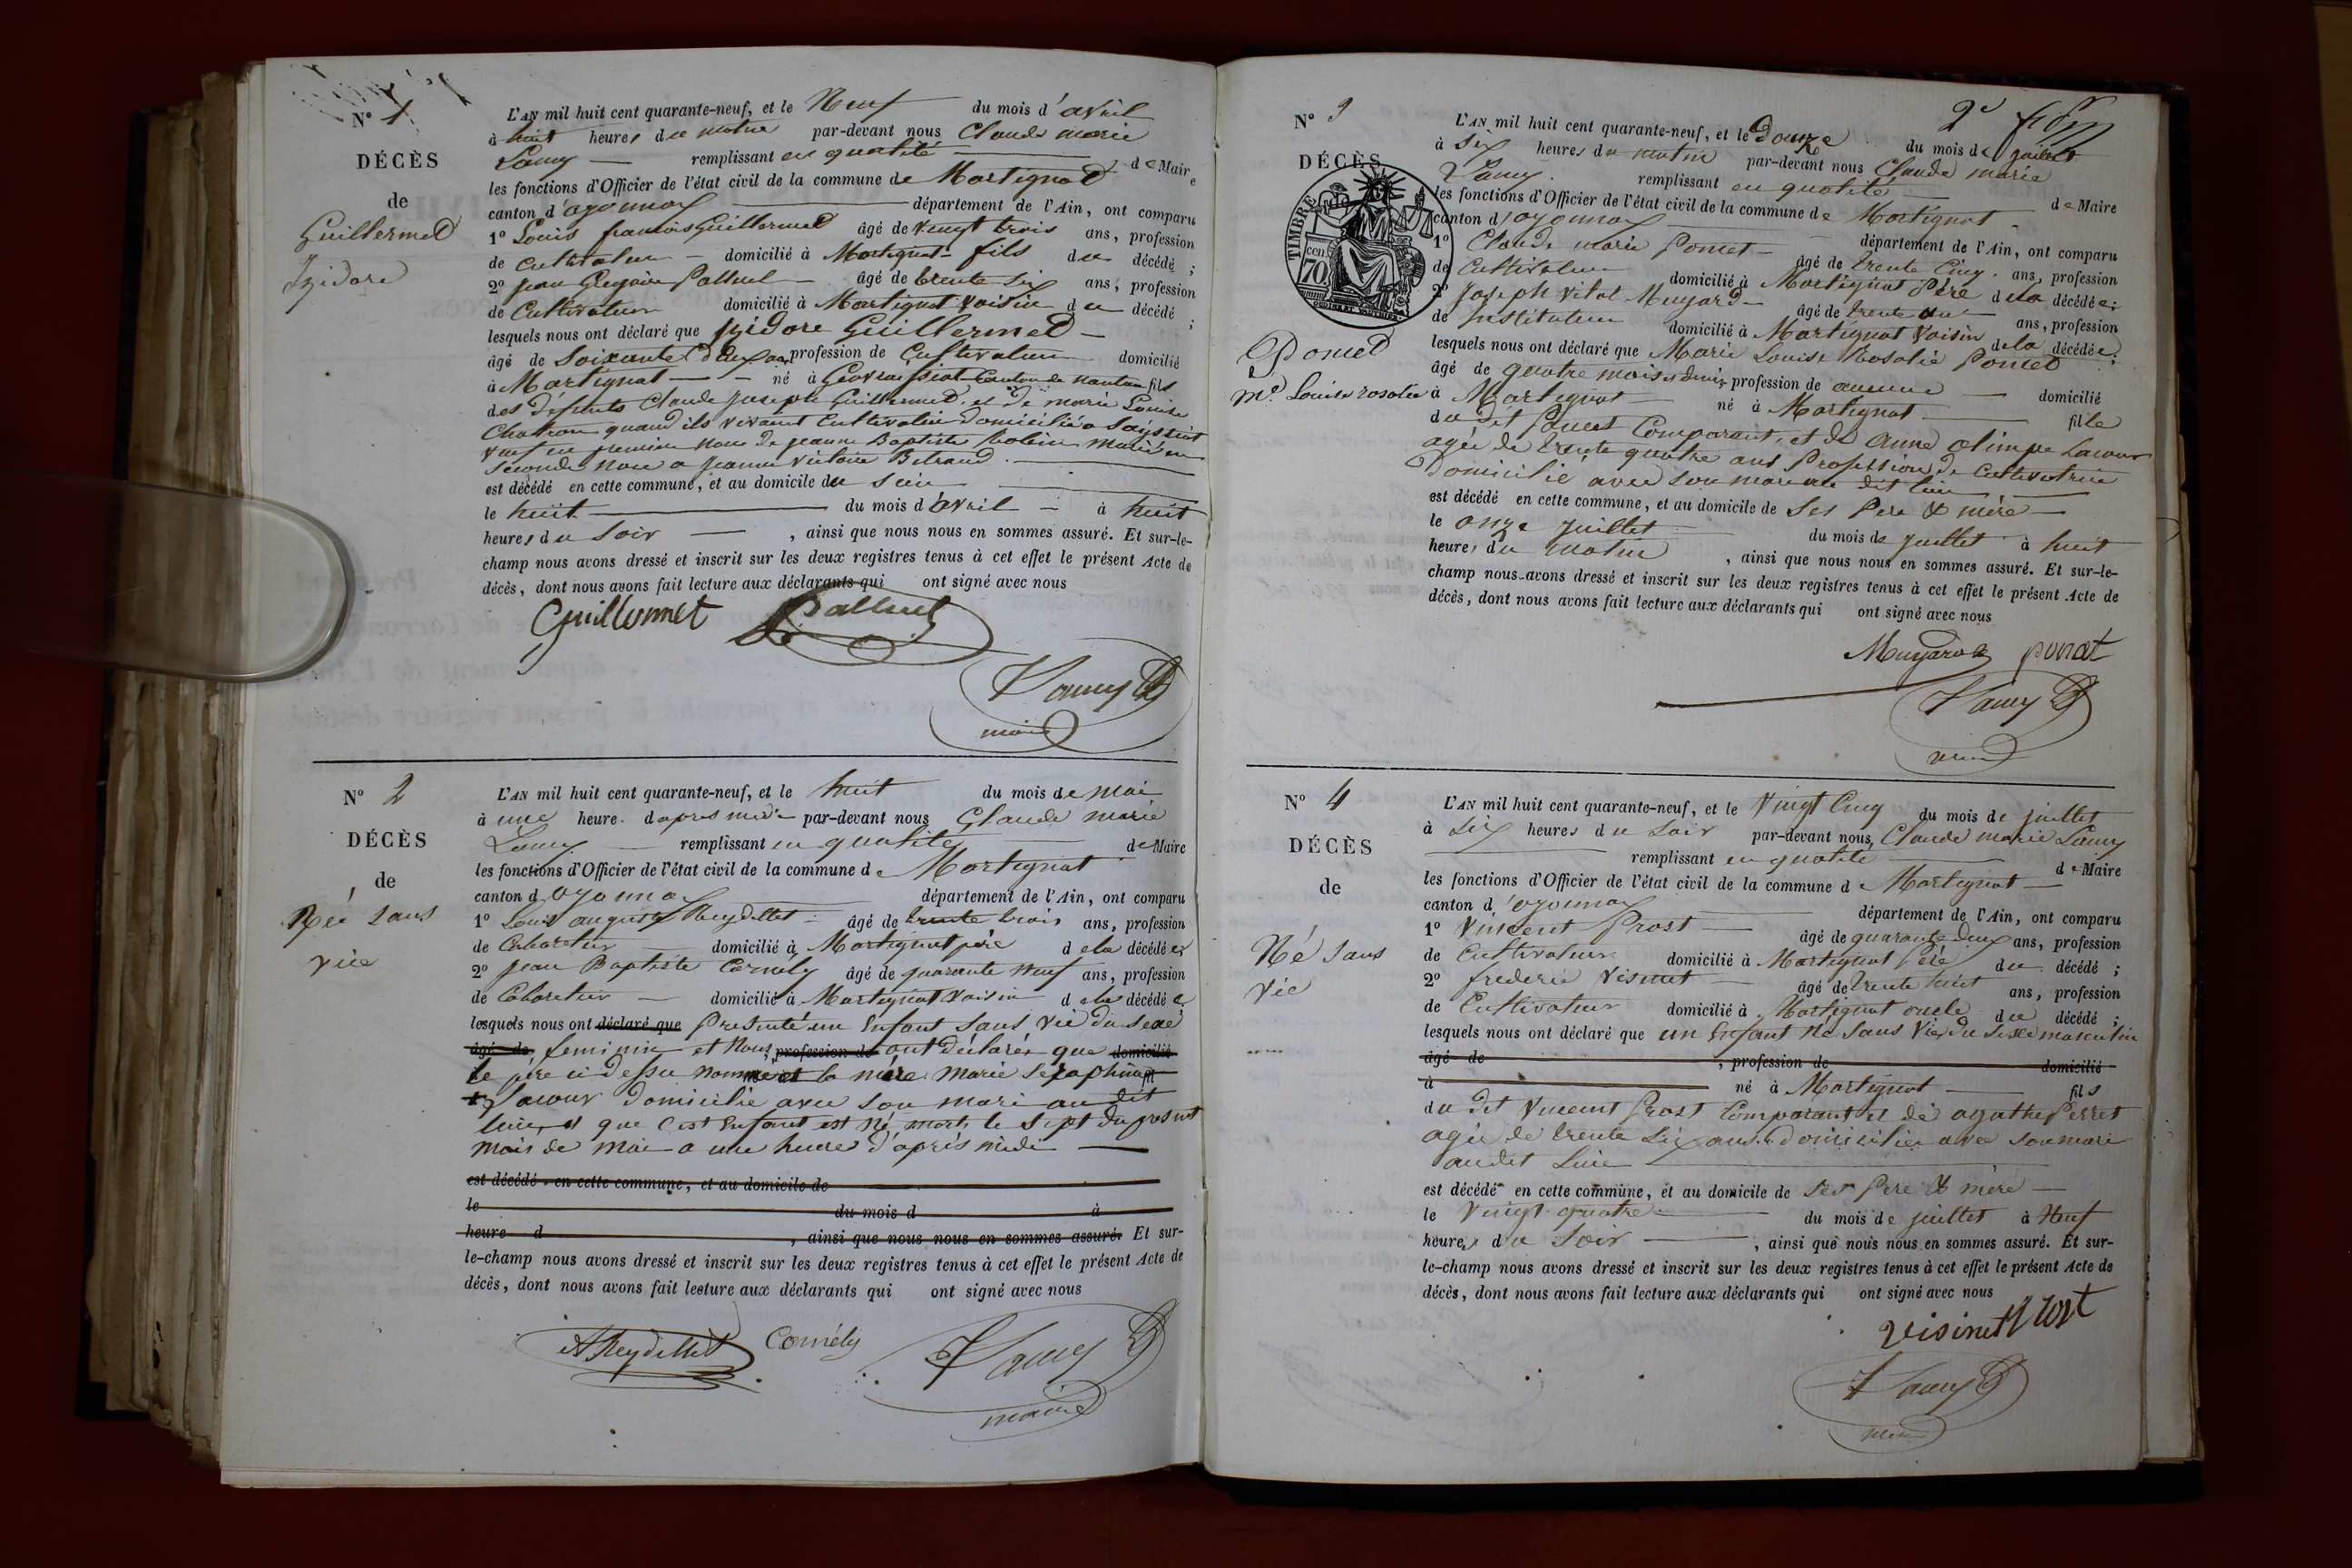 N° 1
DÉCÈS
de
Guillermet
Izidore
L'AN mil huit cent quarante-neuf, et le Neuf du mois d'avril
à huit heures du matin par-devant nous Claude marie
Lamy remplissant en qualité de Maire
les fonctions d'Officier de l'état civil de la commune de Martignat
canton d'oyonnax département de l'Ain, ont comparu
1° Louis francois Guillermet âgé de vingt trois ans, profession
de Cultivateur domicilié à Martignat fils du décédé ;
2° jean Gregoire âgé de trente six ans, profession
de Cultivateur domicilié à Martignat voisin du décédé ;
lesquels nous ont déclaré que Izidore Guillermet
âgé de Soixante deux ans profession de Cultivateur domicilié
à Martignat né à Canton de nantua fils
des défunts Claude joseph Guillermet et de marie Louise
quand ils vivaient Cultivateur domicilié a
veuf en premiere noce de jeanne Baptiste marié en
seconde noce a jeanne victoire
est décédé en cette commune, et au domicile du sien
le huit du mois d'avril à huit
heures du Soir , ainsi que nous nous en sommes assuré. Et sur-le-
champ nous avons dressé et inscrit sur les deux registres tenus à cet effet le présent Acte de
décès, dont nous avons fait lecture aux déclarants qui ont signé avec nous
Guillermet
Lamy
maire
N° 2
DÉCÈS
de
Né sans
vie
L'AN mil huit cent quarante-neuf, et le huit du mois de mai
à une heure d'apres midi par-devant nous Claude marie
Lamy remplissant en qualité de Maire
les fonctions d'Officier de l'état civil de la commune de Martignat
canton d'oyonnax département de l'Ain, ont comparu
1° Louis auguste Reydellet âgé de trente trois ans, profession
de Cabaretier domicilié à Martignat père de la décédée
2° jean Baptiste âgé de quarante neuf ans, profession
de Cabaretier domicilié à Martignat voisin de la décédée
lesquels nous ont déclaré que presenté un Enfant sans vie du sexe
âgé de feminin et nous profession de ont déclarés que domicilié
le père ci dessu nommé et la mère Marie Seraphine
Lacour domicilié avec son mari au dit
lieu et que cest Enfant est né mort le sept du present
mois de mai a une heure d'après midi
est décédé en cette commune, et au domicile de
le du mois d à
heure d , ainsi que nous nous en sommes assuré. Et sur-
le-champ nous avons dressé et inscrit sur les deux registres tenus à cet effet le présent Acte de
décès, dont nous avons fait lecture aux déclarants qui ont signé avec nous
A Reydellet Lamy
maire
2e
N° 3
DÉCÈS
TIMBRE
70 cen
Poncet
me Louise rosalie
L'AN mil huit cent quarante-neuf, et le Douze du mois de juillet
à six heures du matin par-devant nous Claude marie
Lamy remplissant en qualité de Maire
les fonctions d'Officier de l'état civil de la commune de Martignat
canton d'oyonnax département de l'Ain, ont comparu
1° Claude marie Poncet âgé de trente Cinq ans, profession
de Cultivateur domicilié à Martignat Père de la décédée ;
2° Joseph vital Mugard âgé de trente ans, profession
de Instituteur domicilié à Martignat voisin de la décédée ;
lesquels nous ont déclaré que Marie Louise Rosalie Poncet
âgé de quatre mois et demi profession de aucune domicilié
à Martignat né à Martignat fille
du dit Poncet Comparant, et de Anne olimpe Lacour
agée de trente quatre ans Profession de Cultivatrice
Domicilié avec son mari au dit lieu
est décédé en cette commune, et au domicile de Ses Pere & mère
le onze juillet du mois de juillet à huit
heures du matin , ainsi que nous nous en sommes assuré. Et sur-le-
champ nous avons dressé et inscrit sur les deux registres tenus à cet effet le présent Acte de
décès, dont nous avons fait lecture aux déclarants qui ont signé avec nous
Mugard
Lamy
N° 4
DÉCÈS
de
Né sans
vie
L'AN mil huit cent quarante-neuf, et le Vingt Cinq du mois de juillet
à six heures du soir par-devant nous, Claude marie Lamy
remplissant en qualité de Maire
les fonctions d'Officier de l'état civil de la commune de Martignat
canton d'oyonnax département de l'Ain, ont comparu
1° Vincent Prost âgé de quarante deux ans, profession
de Cultivateur domicilié à Martignat Père du décédé ;
2° frederic âgé de trente huit ans, profession
de Cultivateur domicilié à Martignat oncle du décédé ;
lesquels nous ont déclaré que un Enfant Né sans Vie du sexe masculin
âgé de , profession de domicilié
à né à Martignat fils
du dit Vincent Prost Comparant et de agathe Perret
agée de trente six ans domiciliée avec son mari
audit Lieu
est décédé en cette commune, et au domicile de ses Pere & mère
le Vingt quatre du mois de juillet à Neuf
heures du Soir , ainsi que nous nous en sommes assuré. Et sur-
le-champ nous avons dressé et inscrit sur les deux registres tenus à cet effet le présent Acte de
décès, dont nous avons fait lecture aux déclarants qui ont signé avec nous
Prost
Lamy